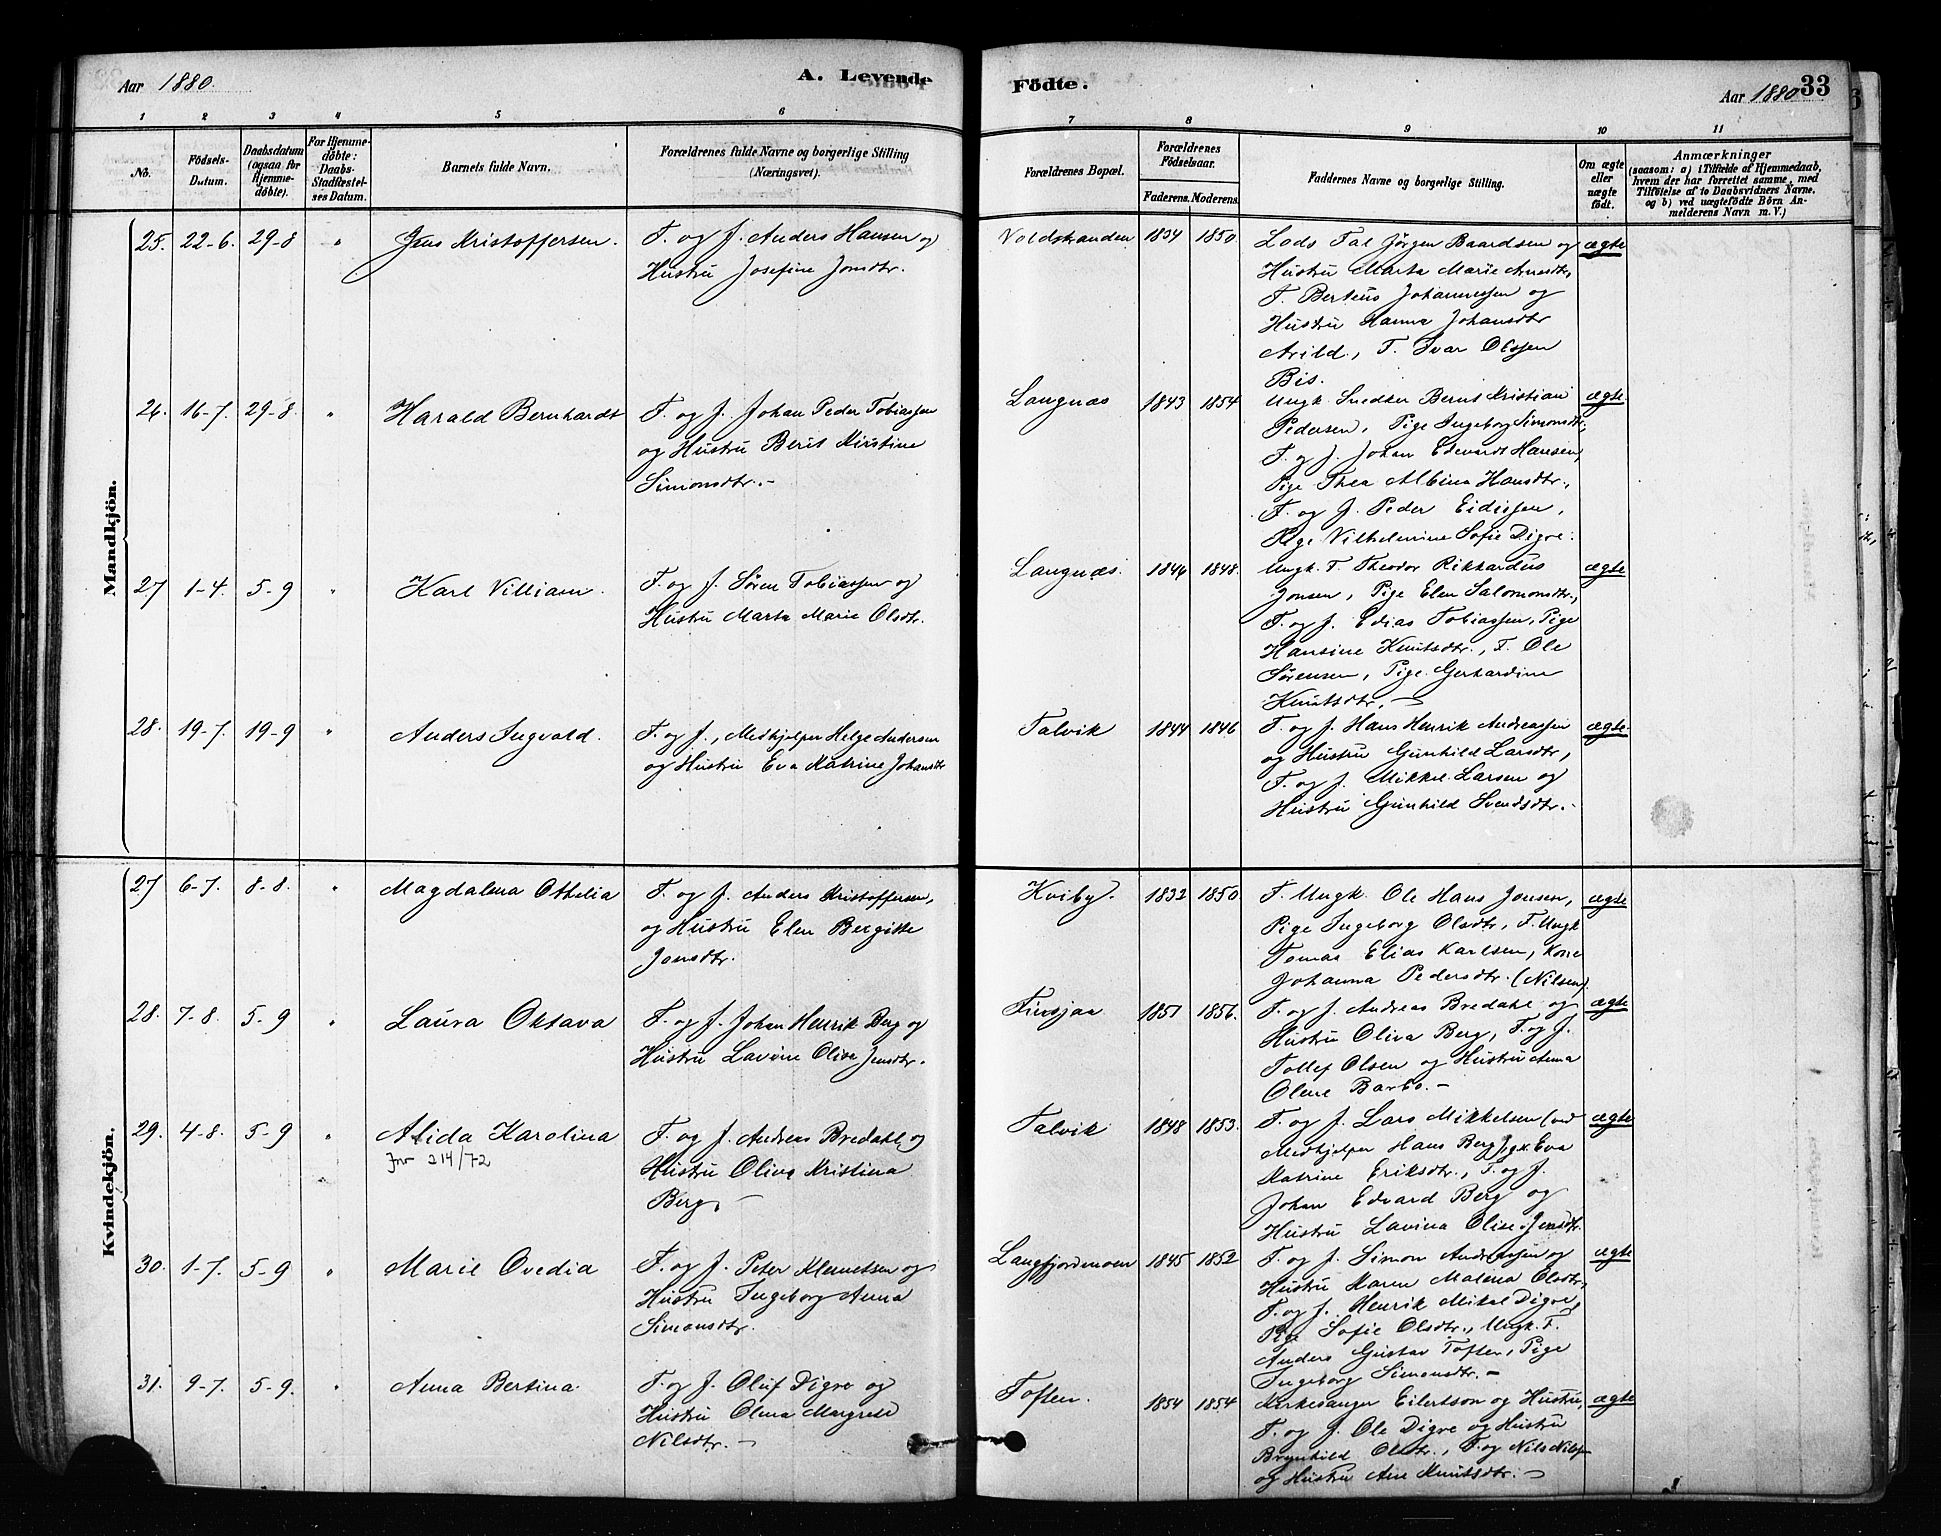 Aar 1880.
A. Levende
1 2 3 4 5 6
No.
Födsels-
Datum.
Daabsdatum
(ogsaa for
Hjemme-
döbte).
For Hjemme-
döbte:
Daabs-
Stadfæstel-
ses Datum.
Barnets fulde Navn.
Forældrenes fulde Navne og borgerlige Stilling
(Næringsvei).
Mandkjön.
25. 22-6. 29-8 " Jens Kristoffersen.
F. og J. Anders Hansen og
Hustru Josefine Jonsdtr.
26. 16-7. 29-8. " Harald Bernhardt
F. og J. Johan Peder Tobiassen
og Hustru Berit Kirstine
Simonsdtr.-
27 1-4. 5-9 " Karl Villiam.
F. og J. Sören Tobiassen og
Hustru Marta Marie Olsdtr.
28. 19-7. 19-9 " Anders Ingvald.
F. og J., Medhjelper Helge Andersen
og Hustru Eva Katrine Johansdtr
Kvindekjön.
27 6-7. 8-8. " Magdalena Othilia
F. og J. Anders Kristoffersen,
og Hustru Elen Bergitte
Jonsdtr.
28. 7-8. 5-9 " Laura Oktava
F. og J. Johan Henrik Berg og
Hustru Lavine Olise Jensdtr.
29. 4-8. 5-9 " Alida Karolina
Jnr 214/72
F. og J. Andreas Bredahl og
Hustru Oliva Kristina
Berg. -
30. 1-7. 5-9 " Marie Ovedia
F. og J. Peter Klemetsen og
Hustru Ingeborg Anna
Simonsdtr.
31. 9-7. 5-9. " Anna Bertina.
F. og J. Oluf Digre og
Hustru Olena Margrete
Nilsdtr. -
Födte.
Aar 1880
33
7 8 9 10 11
Forældrenes Bopæl.
Forældrenes
Födselsaar.
Faderens. Moderens.
Faddernes Navne og borgerlige Stilling.
Om ægte
eller
uægte
födt.
Anmærkninger
(saasom: a) i Tilfælde af Hjemmedaab,
hvem der har forrettet samme, med
Tilföielse af to Daabsvidners Navne,
og b) ved uægtefödte Börn An-
melderens Navn m. V.)
Voldstranden 1834 1850. Lods Jörgen Baardsen og ægte
Hustru Marta Marie Arnesdtr,
F. Berteus Johannessen og
Hustru Hanna Johansdtr
Arild, F. Ivar Olssen
Bis.
Langnæs 1843 1854. Ungk. Snedker Bernt Kristian ægte.
Pedersen, Pige Ingeborg Simonsdtr.,
F. og J. Johan Edevardt Hansen,
Pige Thea Albina Hansdtr.,
F. og J. Peder Eidissen,
Pige Vilhelmine Sofie Digre.
Langnæs. 1846 1848. Ungk. F. Theodor Rikhardus ægte
Jonsen, Pige Elen Salomonsdtr.,
F. og J. Edias Tobiassen, Pige
Hansine Knutsdtr., F. Ole
Sörensen, Pige Gerhardine
Knutsdtr. -
Talvik 1844 1846 F. og J. Hans Henrik Andreassen ægte.
og Hustru Gunhild Larsdtr,
F. og J. Mikkel Larsen og
Hustru Gunhild Svendsdtr.-
Kviby. 1832 1850 F. Ungk. Ole Hans Jonsen, ægte
Pige Ingeborg Olsdtr, F. Ungk
Tomas Elias Karlsen, Kone
Johanna Pedersdtr. (Nilsen).
1851 1856. F. og J. Andreas Bredahl og ægte
Hustru Oliva Berg, F. og J.
Tollef Olsen og Hustru Anna
Olene Barbo. -
Talvik 1848 1853. F. og J. Lars Mikkelsen (ved ægte
Medhjelper Hans Berg) Eva
Katrine Eriksdtr., F. og J.
Johan Edvard Berg og
Hustru Lavina Olise Jensdtr.
Langfjordmoen 1845 1852 F. og J. Simon Andreassen og ægte
Hustru Karen Malena Olsdtr,
F. og J. Henrik Mikal Digre,
Pige Sofie Olsdtr., Ungk. F.
Anders Gustav Toften, Pige
Ingeborg Simonsdtr. -
Toften. 1854 1854. Kirkesanger Eilertson og Hustru, ægte
F. og J. Ole Digre og Hustru
Brynhild Olsdtr., F. og Nils
og Hustru Ane Knutsdtr. -